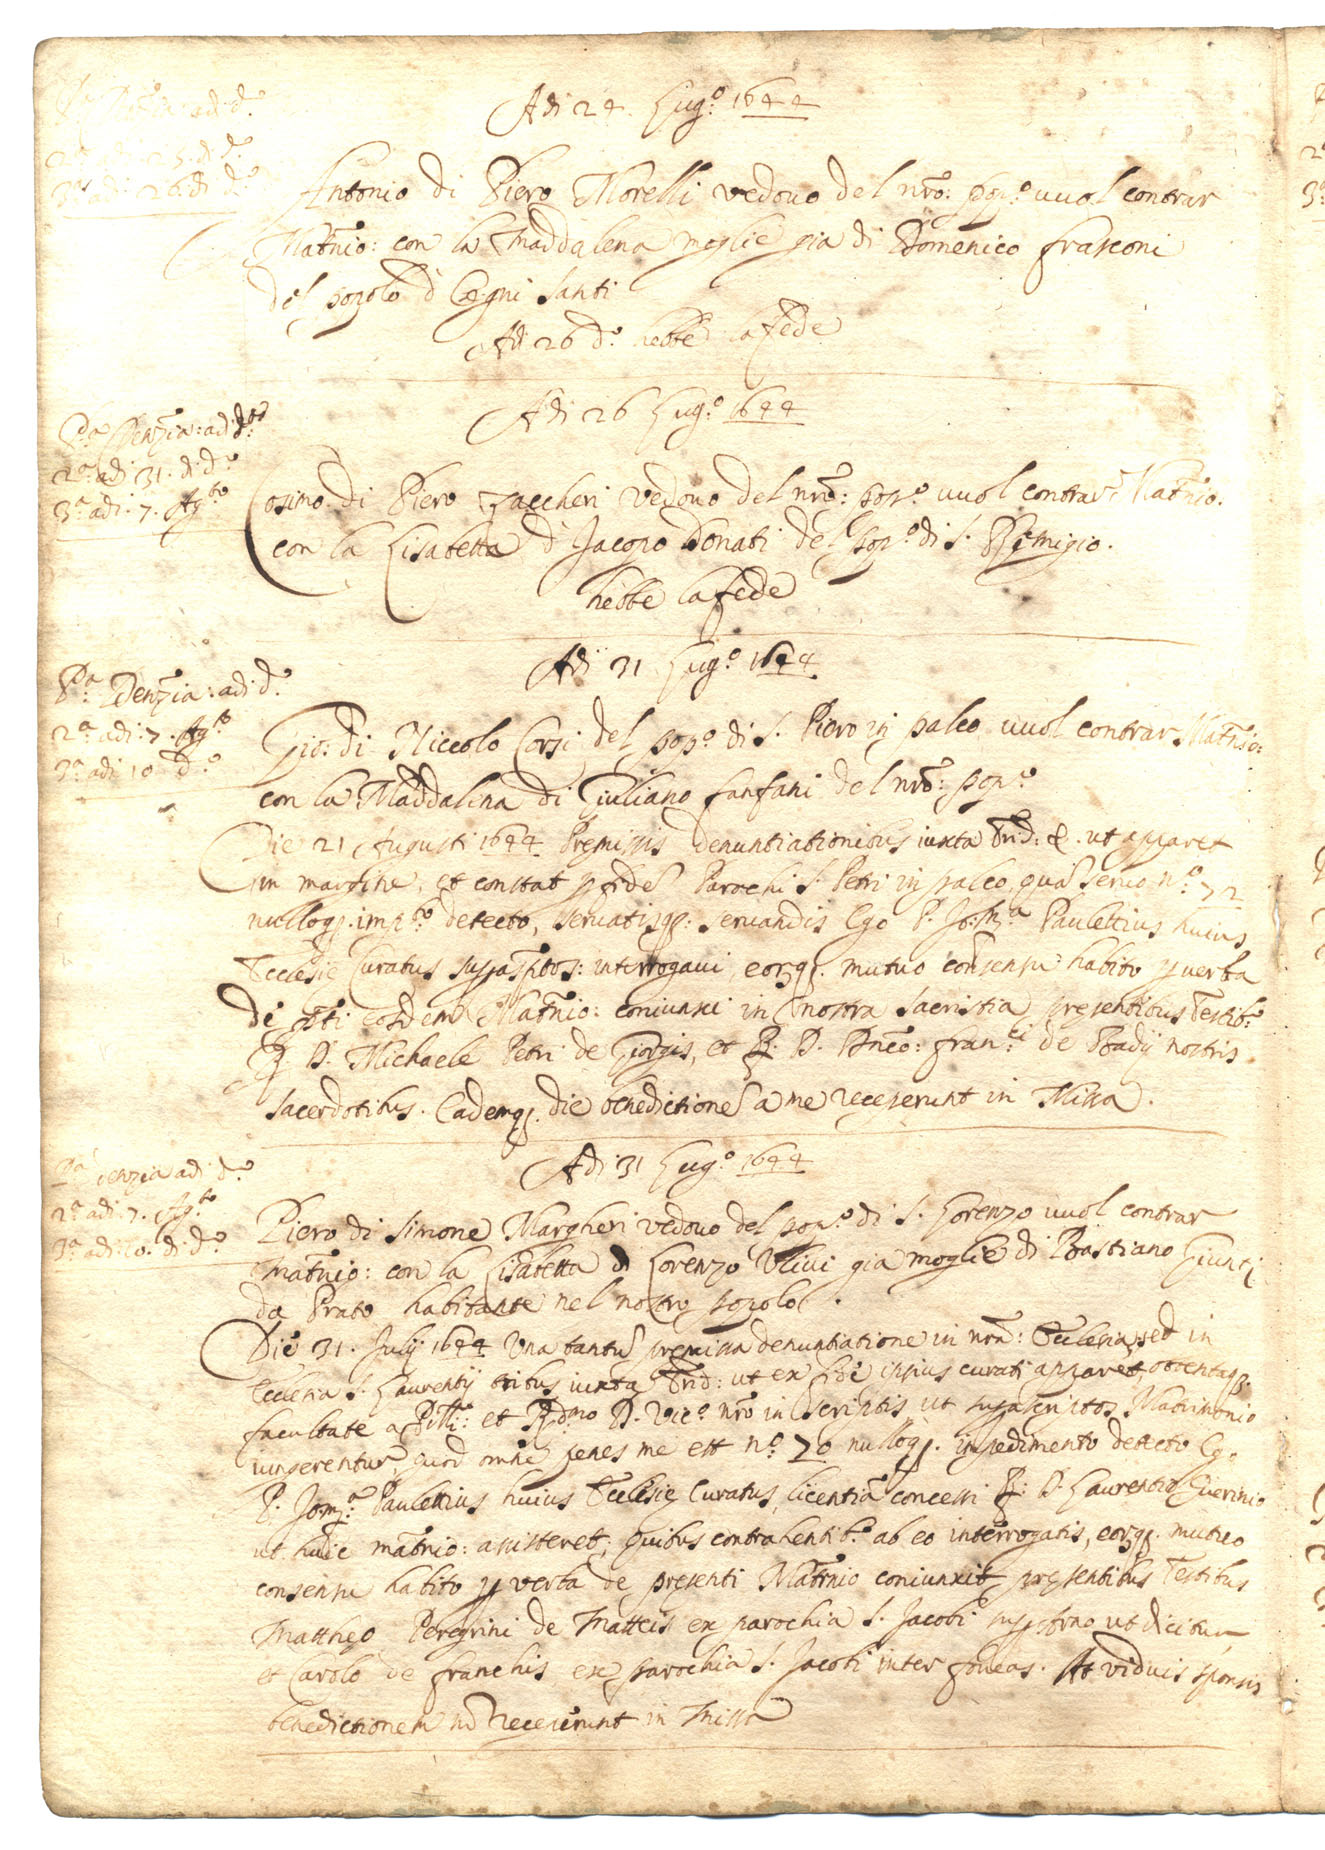 Adi 24 Lug.o 1644
P.a Den.a adi d.o
2.a adi 25 di d.o
3.a adi 26 di d.o
Antonio di Piero Morelli vedovo del nrõ: pop.o vuol contrar
Matr̃nio: con la Maddalena moglie gia di Domenico frasconi
del popolo d' Ogni Santi
Adi 26 d.o hebbe la fede
Adi 26 Lug.o 1644
P.a Denz̃ia: adi d.o
2.a adi 31. di d.o
3.a adi. 7. Ag.to
Cosimo di Piero Zaccheri vedovo del nrõ: pop.o vuol contrar Matr̃nio.
con la Lisabetta d' Jacopo Donati del pop.o di S. Remigio.
hebbe la fede
Adi 31 Lug.o 1644
P.a Denz̃ia: adi d.o
2.a adi. 7. Ag.to
3.a adi 10 d.o
Gio: di Niccolo Corsi del pop.o di S. Piero in palco vuol contrar Matr̃nio:
con la Maddalena di Giuliano fanfani del nrõ: pop.o
Die 21 Augusti 1644 Premissis denuntiationibus iuxta Trid: &. ut apparet
im margine, et constat p fide Parochi S. Petri in palco, qua servo n.o 72
nulloq. imp.to detecto, servatisq: servandis Ego P. Jo: M.a Paulettius huius
Ecclesie Curatus suprascriptos: interrogavi, eorq. mutuo consensu habito p verba
de p̃nti eosdem Matr̃nio: coniunxi in nostra sacristia presentibus Testib.
R D. Michaele Petri de Giorgis, et R. D. Dnẽo: fran.ci de Badij nostris
sacerdotibus. Eademq. die benedictione a me receperunt in Missa.
Adi 31 Lug.o 1644
P.a Denzia adi d.o
2.a adi. 7. Ag.to
3.a adi. 10. di d.o
Piero di Simone Margheri vedovo del pop.o di S. Lorenzo vuol contrar
matr̃nio: con la Lisabetta di Lorenzo Ulivi gia moglie di Bastiano Giunti
da Prato habitante nel nostro popolo.
Die 31. Julij 1644 Una tantu premissa denuntiatione in nrã: Ecclesia, sed in
ecclesia S. Laurentij tribus iuxta Trid: ut ex fide ipsius curati apparet, obtentaq.
facultate a Pill.i: et R.dmo D. Vic.o nrõ in scriptis ut suprascriptos Matrimonio
iungerentur, quod omne penes me est n.o 70 nulloq. impedimento detecto Ego
P. Jo: M.a Paulettius huius Ecclesie Curatus, licentia concessi R: D. Laurentio Guerinio
ut huic matr̃nio: assisteret, Quibus contrahentib. ab eo interrogatis, eorq. mutuo
consensu habito p verba de presenti Matr̃nio coniunxit presentibus Testibus
Mattheo Peregrini de Matteis ex parochia S. Jacobi supra Arno ut dicitur
et Carolo de franchis ex parochia S. Jacobi inter foveas. At viduis sponsis
benedictionem nõ receperunt in Missa